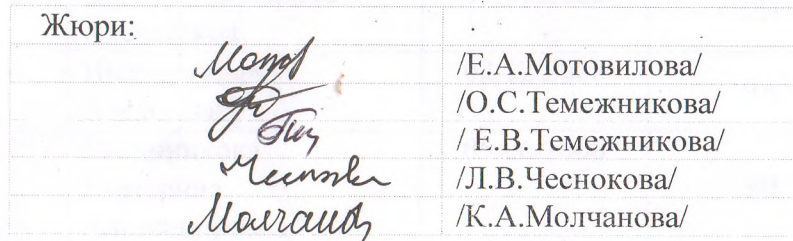 Жюри:
/Е.А.Мотовилова/
/О.С.Темежникова/
/ Е.В.Темежникова/
/Л.В.Чеснокова/
/К.А.Молчанова/